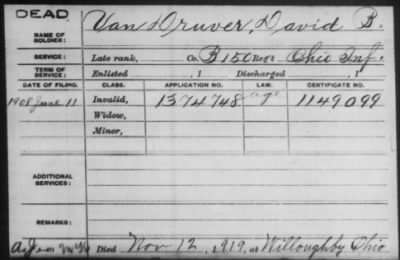 DEAD
NAME OF SOLDIER: Van Druver, David B.
SERVICE: Late rank, Co. B 150 Reg't Ohio Inf.
TERM OF SERVICE: Enlisted , 1 Discharged , 1
DATE OF FILING. CLASS. APPLICATION NO. LAW. CERTIFICATE NO.
1908 June 11 Invalid, 1374748 1149099
Widow,
Minor,
ADDITIONAL SERVICES:
REMARKS:
Died Nov 12, 1919, at Willoughby Ohio